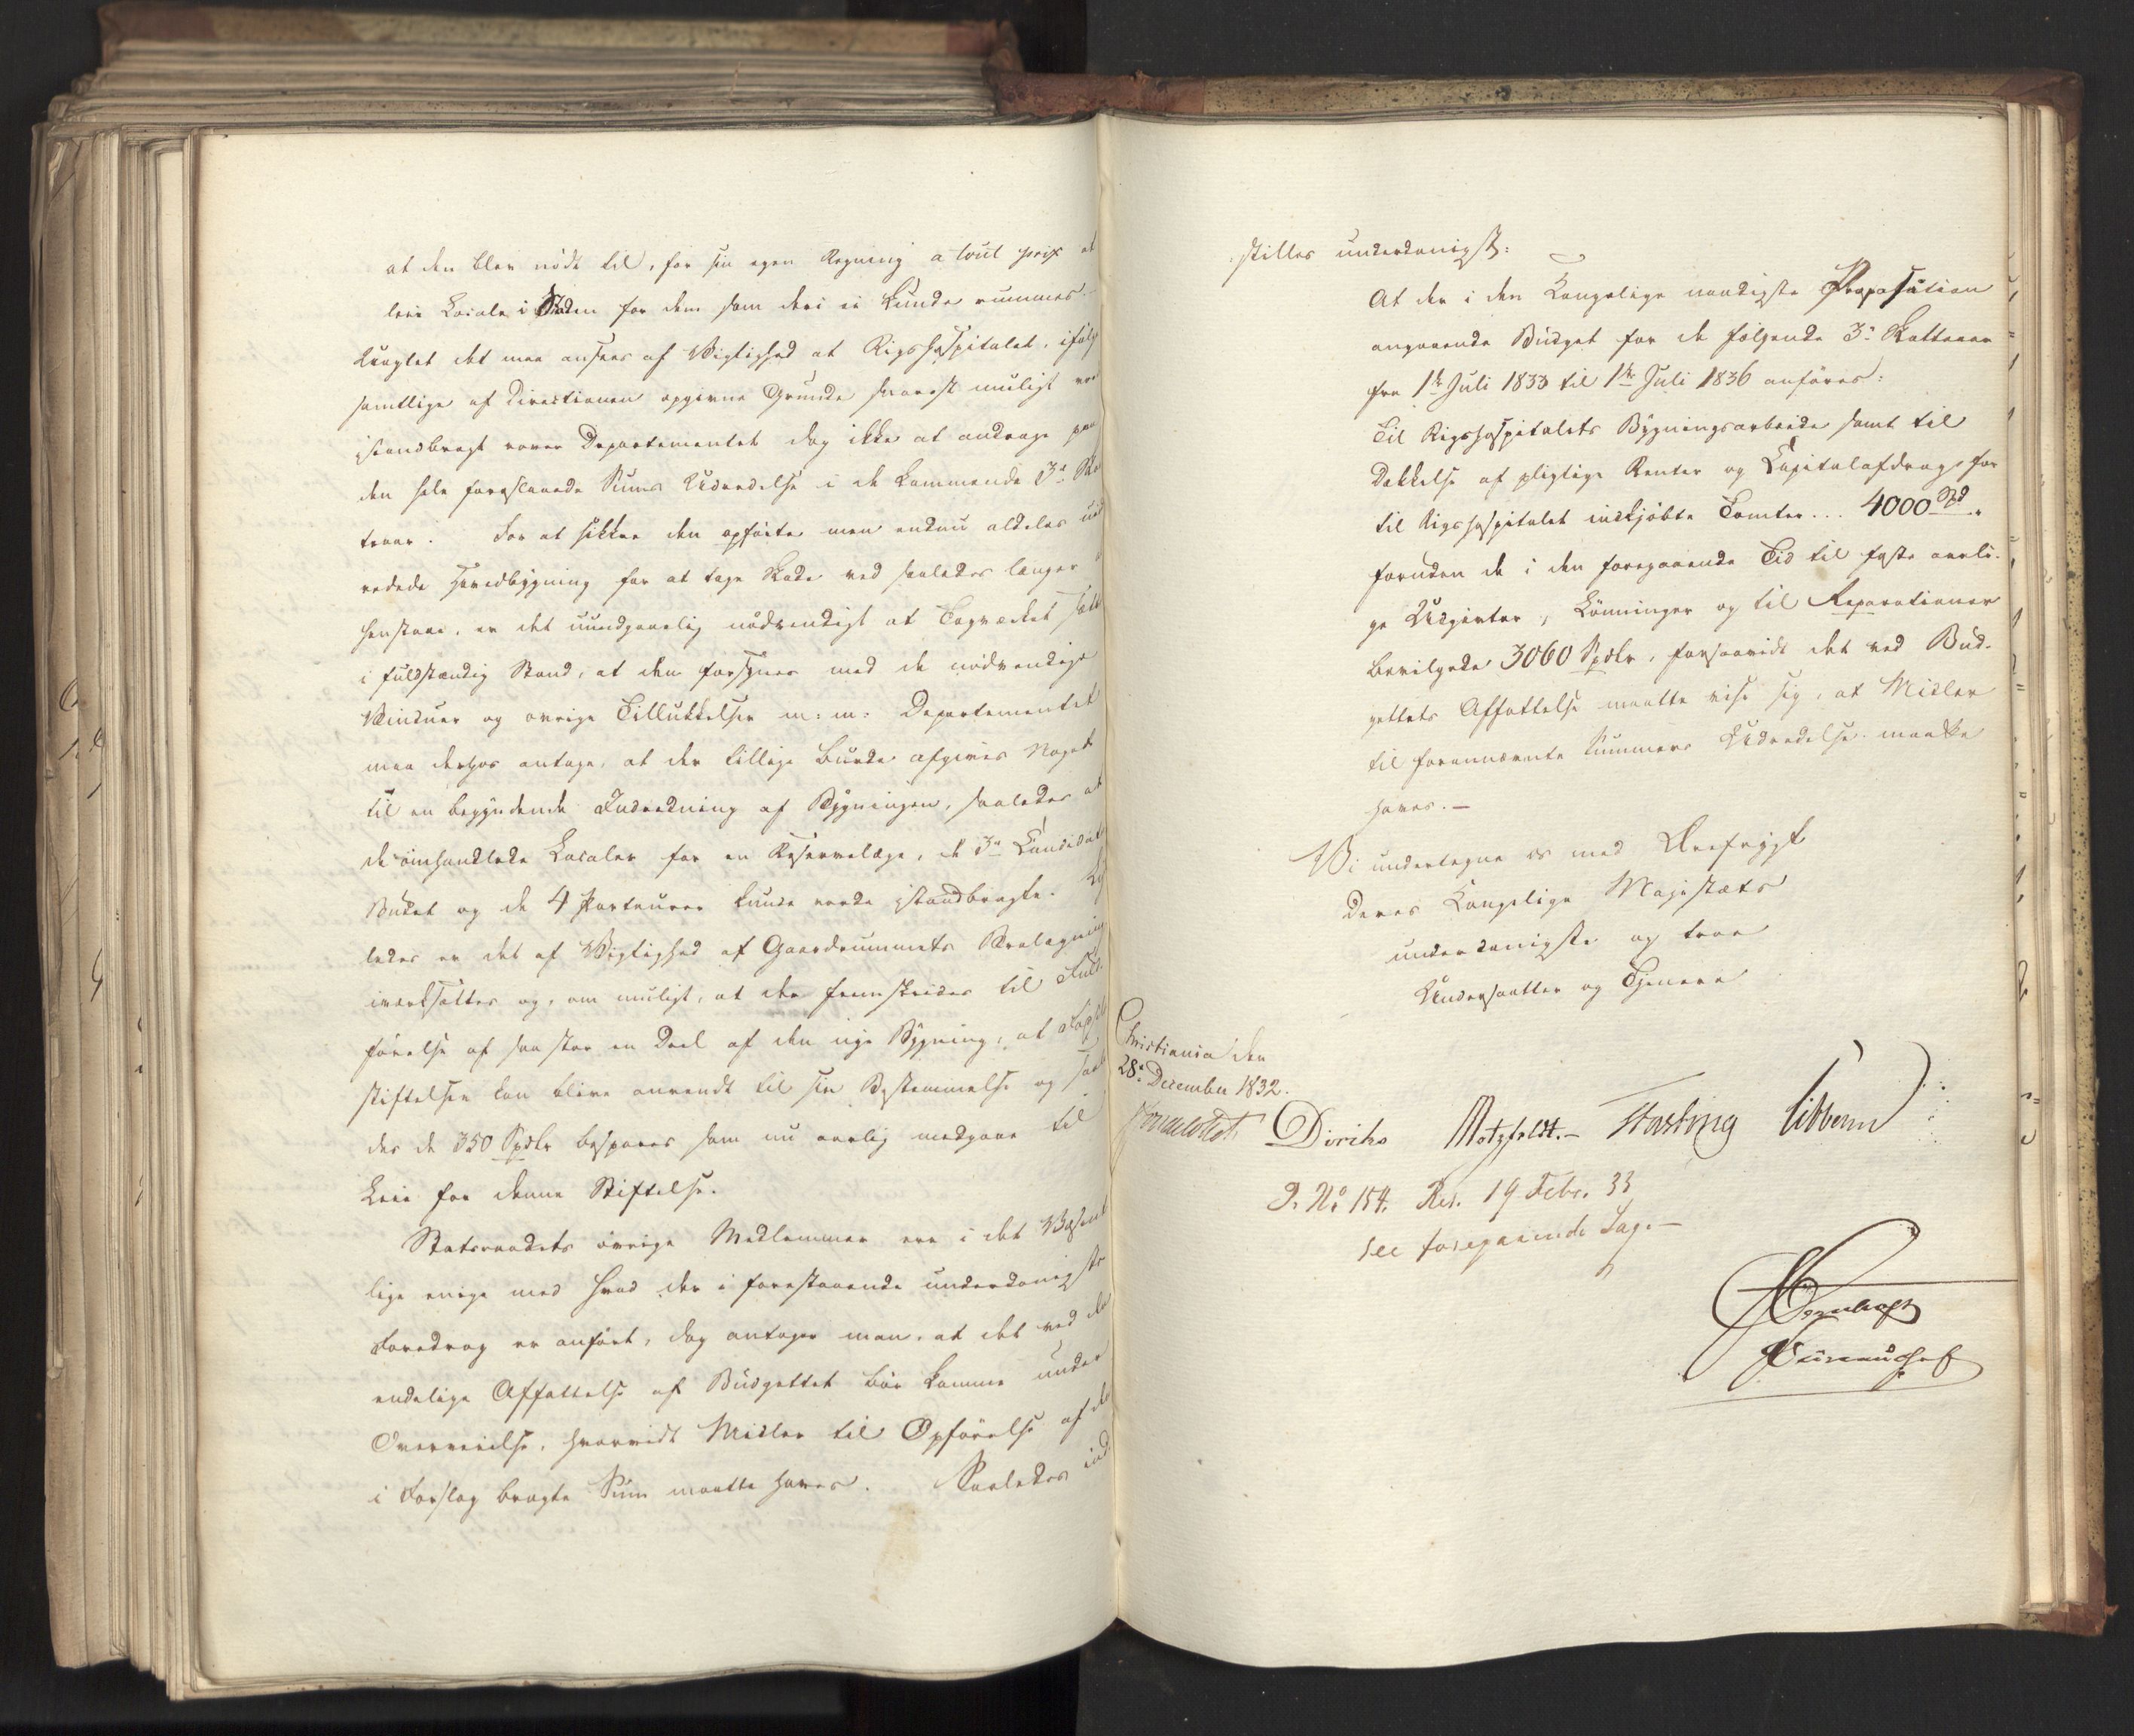 at den blev nödt til, for sin egen Regning a tout prix at
leie Locale i Staden for dem som deri ei kunde rummes.
Uagtet det maa ansees af Vigtighed at Rigshospitalet, ifølge
samtlige af Directionen opgivne Grunde snarest muligt
istandbragt vover Departementet dog ikke at andrage paa
den hele foreslaaede Sums Udredelse i de kommende 3de
teaar. For at sikkre den opførte men endnu aldeles
redede Hovedbygning for at tage Skade ved saaledes længer
henstaae, er det uundgaaelig nødvendigt at Tagværket
i fuldstændig Stand, at den forsynes med de nødvendige
Vinduer og øvrige Tillukkelser m: m: Departementet
maa derhos antage, at der tillige burde afgives Noget
til en begyndende Indredning af Bygningen, saaledes at
de omhandlede Localer for en Reservelæge, de 3de Candidater
Budet og de 4 Porteurer kunde vorde istandbragte.
ledes er det af Vigtighed at Gaardrummets Brolægning
iværksættes og, om muligt, at der fremskrides til
førelse af saa stor en Deel af den nye Bygning, at
stiftelsen kan blive anvendt til sin Bestemmelse og
des de 350 Spdlr bespares som nu aarlig medgaae til
Leie for denne Stiftelse.
Statsraadets øvrige Medlemmer ere i det Væsent
lige enige med hvad der i forestaaende underdanigste
Foredrag er anført, dog antager man, at det ved den
endelige Affattelse af Budgettet bør komme under
Overveielse, hvorvidt Midler til Opførelse af den
i Forslag bragte Sum maatte haves. Saaledes ind
stilles underdanigst:
At der i den Kongelige naadigste Proposition
angaaende Budget for de følgende 3de Skatteaar
fra 1ste Juli 1833 til 1ste Juli 1836 anføres:
Til Rigshospitalets Bygningsarbeide samt til
Dækkelse af pligtige Renter og Capitalafdrag for
til Rigshospitalet indkjøbte Tomter... 4000 Spd.
foruden de i den foregaaende Tid til faste aarli-
ge Udgivter, Lønninger og til Reparationer
bevilgede 3060 Spdlr, forsaavidt det ved Bud-
gettets Affattelse maatte vise sig, at Midler
til forannævnte Summers Udredelse maatte
haves. —
Vi undertegne os med Ærefrygt
Deres Kongelige Majestæts
underdanigste og troe
Undersaatter og Tjenere
Christiania den
28de December 1832.
Diriks Motzfeldt.– Fasting Sibbern
P. No 154. Res. 19 Febr. 33
see foregaaende Sag.—
Bureauchef